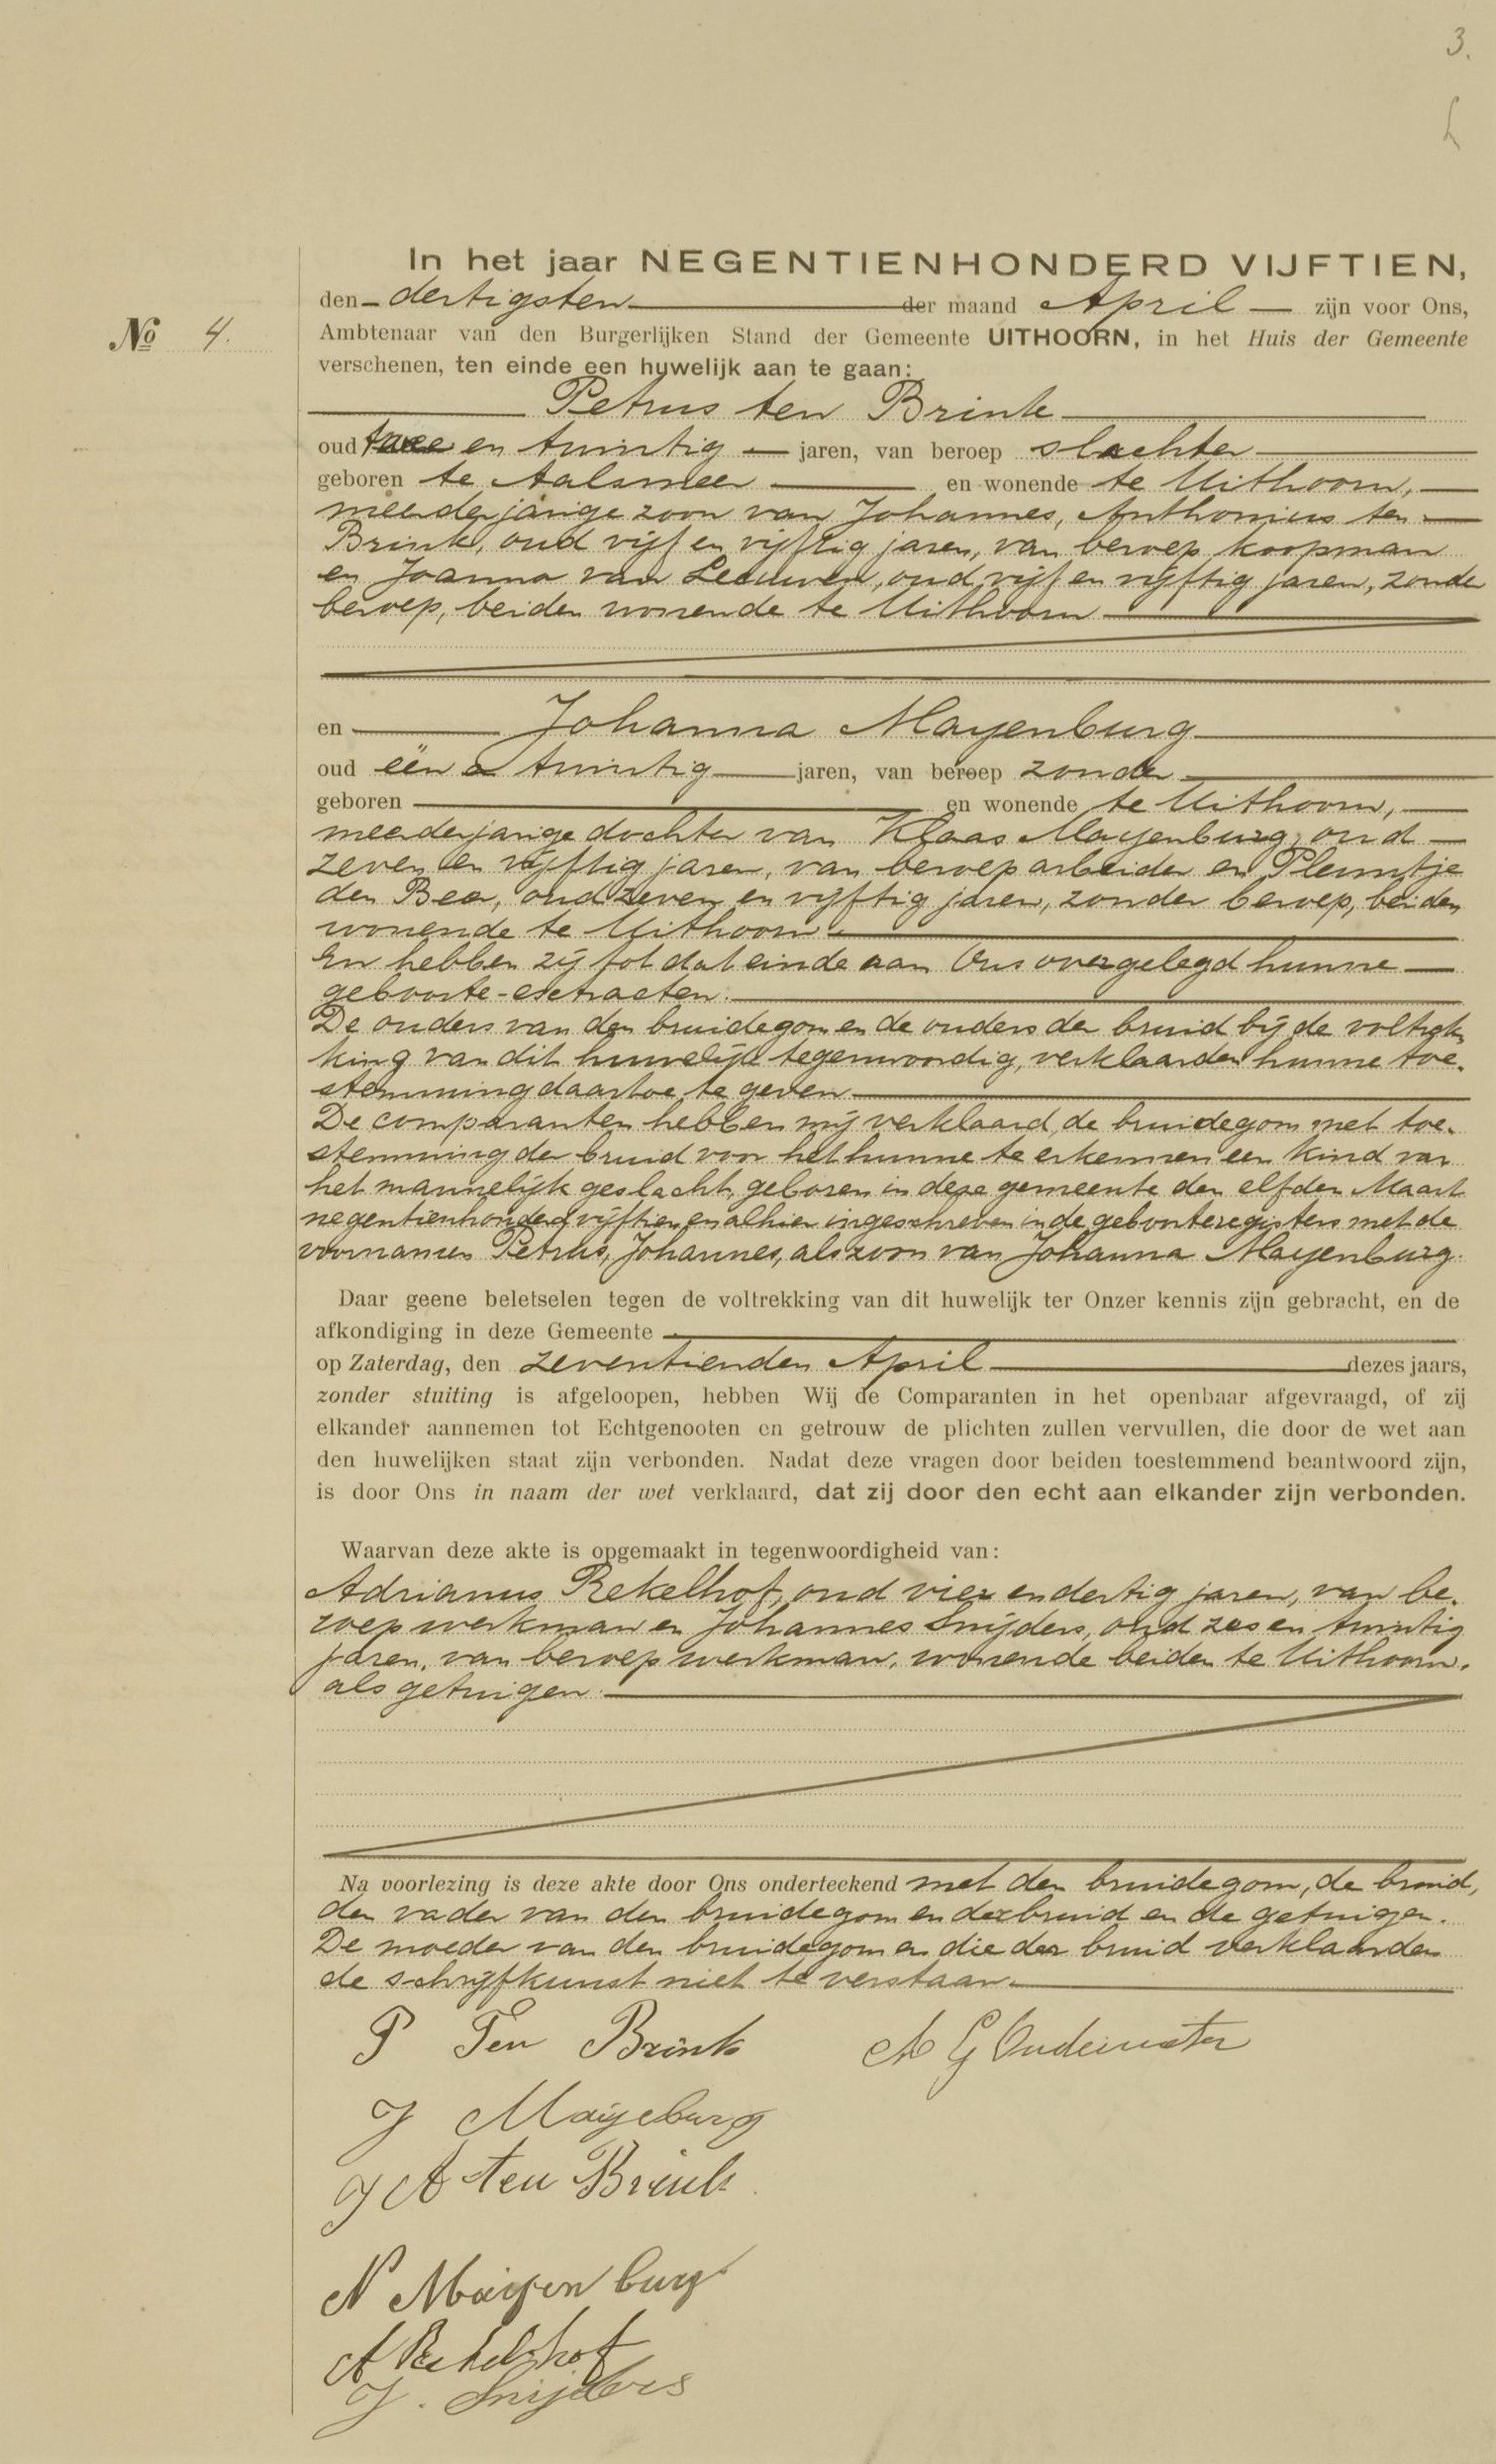 3.
In het jaar NEGENTIENHONDERD VIJFTIEN,
den dertigsten der maand April zijn voor Ons,
No 4.
Ambtenaar van den Burgerlijken Stand der Gemeente UITHOORN, in het Huis der Gemeente
verschenen, ten einde een huwelijk aan te gaan:
Petrus ten Brink
oud twee en twintig jaren, van beroep slachter
geboren te Aalsmeer en wonende te Uithoorn,
meerderjarige zoon van Johannes, Anthonius ten
Brink, oud vijf en vijftig jaren, van beroep koopman
en Joanna van Leeuwen, oud vijf en vijftig jaren, zonder
beroep, beiden wonende te Uithoorn
en Johanna Mayenburg
oud één en twintig jaren, van beroep zonder
geboren en wonende te Uithoorn,
meerderjarige dochter van Klaas Mayenburg, oud
zeven en vijftig jaren, van beroep arbeider en Pleuntje
den Beer, oud zeven en vijftig jaren, zonder beroep, beiden
wonende te Uithoorn.
En hebben zij tot dat einde aan Ons overgelegd hunne
geboorte-extracten.
De ouders van den bruidegom en de ouders der bruid bij de voltrek-
king van dit huwelijk tegenwoordig, verklaarden hunne toe-
stemming daartoe te geven
De comparanten hebben mij verklaard, de bruidegom met toe-
stemming der bruid voor het hunne te erkennen een kind van
het mannelijk geslacht, geboren in deze gemeente den elfden Maart
negentienhonderd vijftien en alhier ingeschreven in de geboorteregisters met de
voornamen Petrus, Johannes, als zoon van Johanna Mayenburg.
Daar geene beletselen tegen de voltrekking van dit huwelijk ter Onzer kennis zijn gebracht, en de
afkondiging in deze Gemeente
op Zaterdag, den zeventienden April dezes jaars,
zonder stuiting is afgeloopen, hebben Wij de Comparanten in het openbaar afgevraagd, of zij
elkander aannemen tot Echtgenooten en getrouw de plichten zullen vervullen, die door de wet aan
den huwelijken staat zijn verbonden. Nadat deze vragen door beiden toestemmend beantwoord zijn,
is door Ons in naam der wet verklaard, dat zij door den echt aan elkander zijn verbonden.
Waarvan deze akte is opgemaakt in tegenwoordigheid van:
Adrianus Rekelhof, oud vier en dertig jaren, van be-
roep werkman en Johannes Snijders, oud zes en twintig
jaren, van beroep werkman, wonende beiden te Uithoorn.
als getuigen.
Na voorlezing is deze akte door Ons onderteekend met den bruidegom, de bruid,
den vader van den bruidegom en der bruid en de getuigen.
De moeder van den bruidegom en die der bruid verklaarden
de schrijfkunst niet te verstaan.
P Ten Brink A G Oudewater
J Mayeburg
J A ten Brink
N Maijenburg
A Rekelhof
J. Snijders